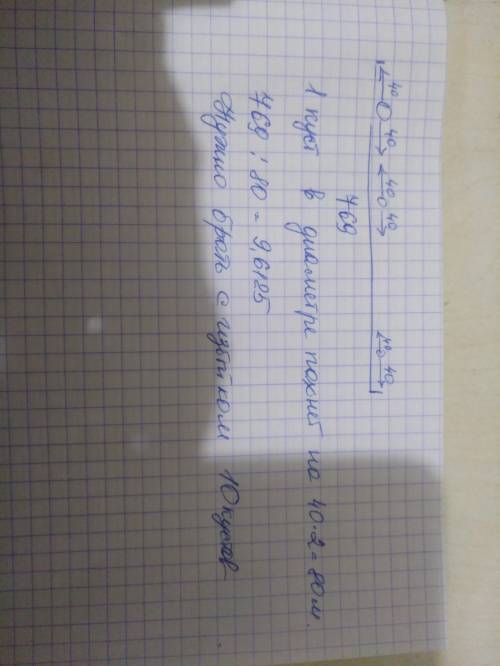 40 40 40 40 40 40
769
1 куст в диаметре пахнет на 40·2=80м.
769:80=9,6125
Нужно брать с избытком 10 кустов